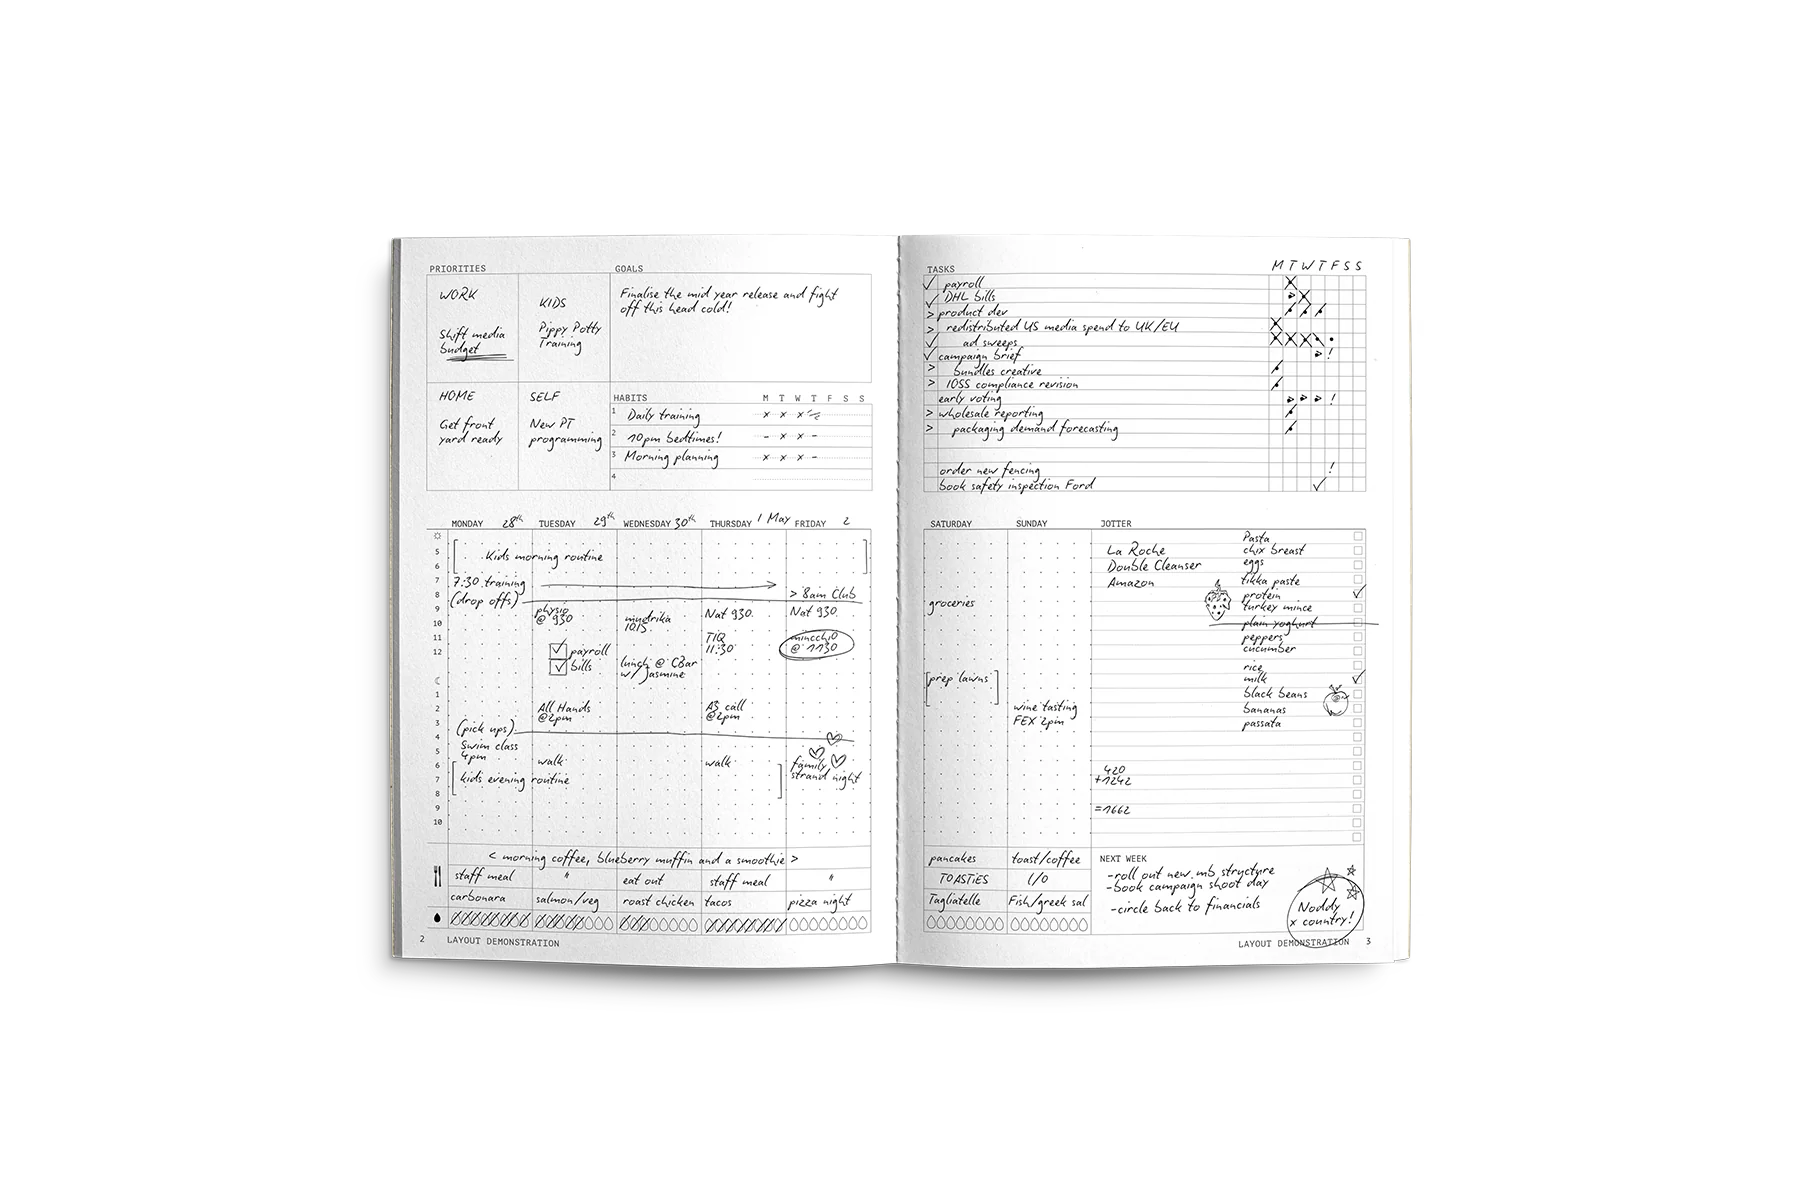 PRIORITIES
WORK
Shift media
budget
KIDS
Pippy Potty
Training
HOME
Get front
yard ready
SELF
New PT
programming
GOALS
Finalise the mid year release and fight
off this head cold!
HABITS M T W T F S S
1 Daily training x x x
2 10pm bedtimes! - x x -
3 Morning planning x x x -
4
MONDAY 28th TUESDAY 29th WEDNESDAY 30th THURSDAY 1 May FRIDAY 2
5
6
7
8
9
10
11
12
1
2
3
4
5
6
7
8
9
10
Kids morning routine
7:30 training
> 8am Club
(drop offs)
physio
@ 930
payroll
bills
All Hands
@2pm
mudrika
1015
lunch @ CBar
w/ Jasmine
Nat 930
TIQ
11:30
A3 call
@2pm
Nat 930
mincchio
@ 1130
(pick ups)
Swim class
4pm
walk
walk
family
strand night
kids evening routine
< morning coffee, blueberry muffin and a smoothie >
staff meal " eat out staff meal "
carbonara salmon/veg roast chicken tacos pizza night
2 LAYOUT DEMONSTRATION
TASKS M T W T F S S
payroll
DHL bills
> product dev
> redistributed US media spend to UK/EU
ad sweeps
campaign brief !
> bundles creative
> IOSS compliance revision
early voting !
> wholesale reporting
> packaging demand forecasting
order new fencing !
book safety inspection Ford
SATURDAY
groceries
prep lawns
pancakes
TOASTIES
Tagliatelle
SUNDAY
wine tasting
FEX 2pm
toast/coffee
L/O
Fish/greek sal
JOTTER
La Roche
Double Cleanser
Amazon
Pasta
chix breast
eggs
tikka paste
protein
turkey mince
plain yoghurt
peppers
cucumber
rice
milk
black beans
bananas
passata
420
+1242
=1662
NEXT WEEK
-roll out new mb structure
-book campaign shoot day
-circle back to financials
Noddy
x country!
LAYOUT DEMONSTRATION 3